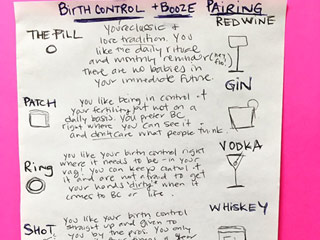 BIRTH CONTROL + BOOZE PAIRING
THE PILL
you're classic +
love tradition. You
like the daily ritual
and monthly reminder
there are no babies in
your immediate future.
RED WINE
GIN
PATCH
you like being in control of
your fertility but not on a
daily basis. you prefer BC
right where you can see it -
and don't care what people think.
VODKA
Ring
you like your birth control right
where it needs to be - in your
vag! you can keep control of
it and are not afraid to get
your hands "dirty" when it
comes to BC or life.
WHISKEY
SHOT
you like your birth control
straight up and given to
you by the pros. You only